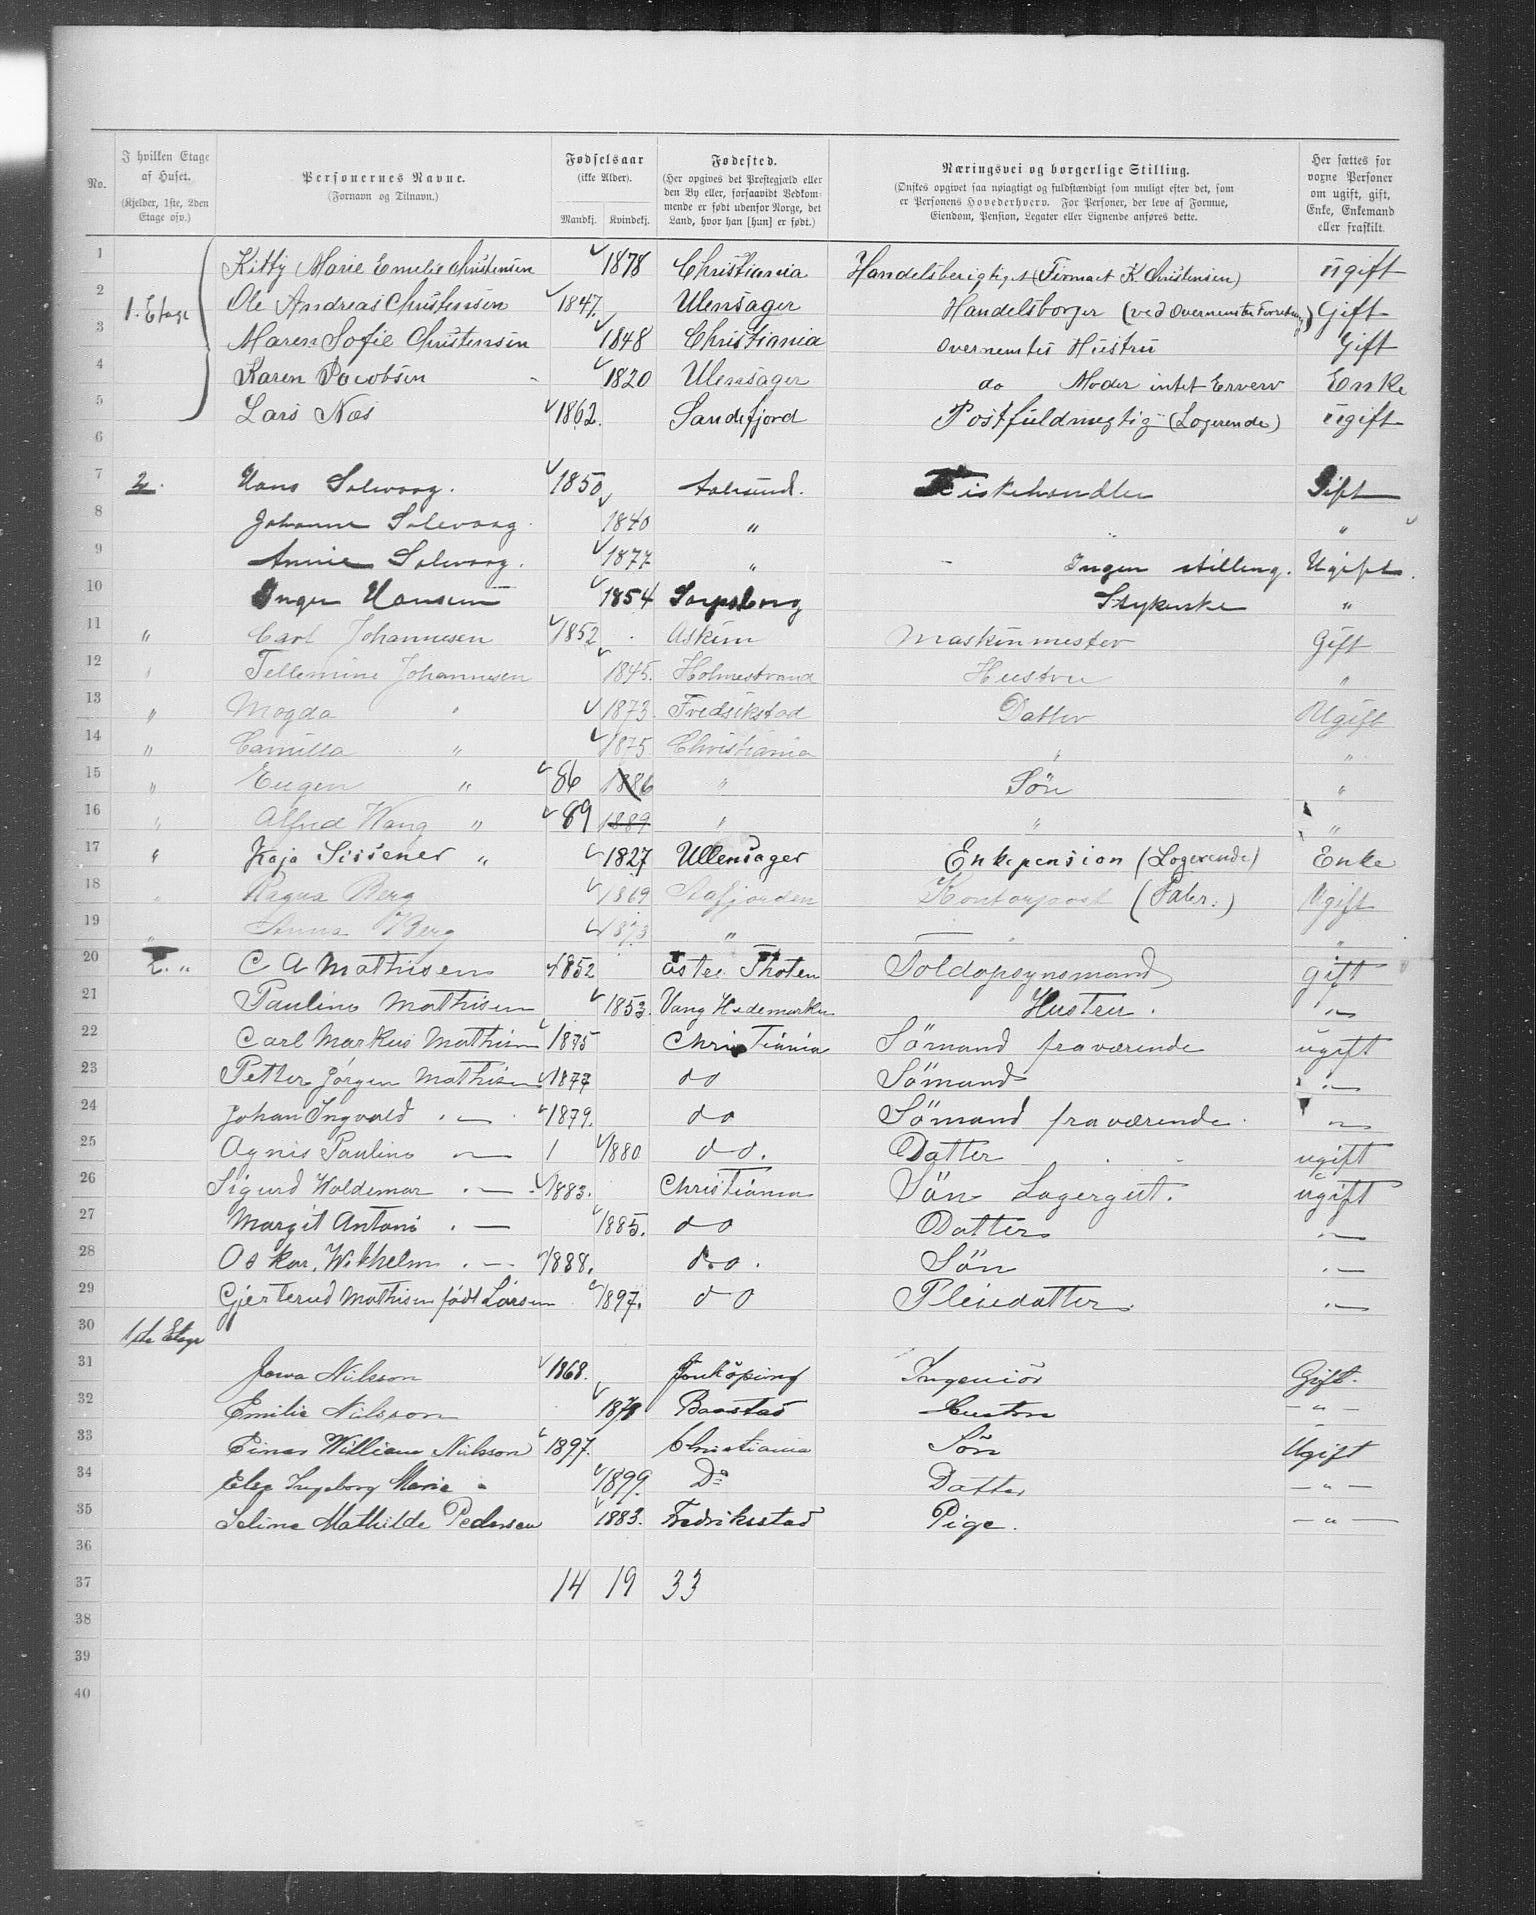 No. | I hvilken Etage af Huset. (Kjelder, 1ste, 2den Etage osv.) | Personernes Navne. (Fornavn og Tilnavn.) | Fødselsaar (ikke Alder). Mandkj. Kvindekj. | Fødested. (Her opgives det Prestegjæld eller den By eller, forsaavidt Vedkommende er født udenfor Norge, det Land, hvor han [hun] er født.) | Næringsvei og borgerlige Stilling. (Ønskes opgivet saa nøiagtigt og fuldstændigt som muligt efter det, som er Personens Hovederhverv. For Personer, der leve af Formue, Eiendom, Pension, Legater eller Lignende anføres dette. | Her sættes for voxne Personer om ugift, gift, Enke, Enkemand eller fraskilt.
1 Kitty Marie Emelie Christensen 1878 Christiania Handelsberigtiget (Firmaet K Christensen) ugift
2 1. Etage Ole Andreas Christensen 1847. Ulensager Handelsborger (ved Overnevnte Forretning) Gift
3 Maren Sofie Christensen 1848 Christiania Overnevntes Hustru Gift
4 Karen Jacobsen 1820 Ulensager do Moder intet Erverv Enke
5 Lars Næs 1862. Sandefjord Postfuldmegtig (Logerende) ugift
6
7 2. Hans Solevaag. 1850 Aalesund. Fiskehandler Gift
8 Johanne Solevaag 1840 " "
9 Annie Solevaag. 1877 " Ingen stilling. Ugift.
10 Inger Hansen 1854 Sarpsborg Strykerske "
11 " Carl Johannesen 1852 Askim Maskinmester Gift
12 " Tellemine Johannesen 1845. Holmestrand Hustru "
13 " Magda " 1873. Fredrikstad Datter Ugift
14 " Camilla " 1875 Christiania " "
15 " Eugen " 86 1886 " Søn "
16 " Alfred Wang " 89 1889 " " "
17 " Kaja Sissener " 1827 Ullensager Enkepension (Logerende) Enke
18 " Ragna Berg 1869 Aafjorden Kontorpost (Fabr.) Ugift
19 " Berg 1873 " " "
20 2. " C A Mathisen 1852 Østre Thoten Toldopsynsmand gift
21 Pauline Mathisen 1853. Vang Hedemarken Hustru. "
22 Carl Markus Mathisen 1875 Christiania Sømand fraværende ugift
23 Petter Jørgen Mathisen 1877 do Sømand —"—
24 Johan Ingvald —"— 1879. do Sømand fraværende. —"—
25 Agnis Pauline —"— 1 1880 do. Datter ugift
26 Sigurd Waldemar —"— 1883. Christiania Søn Lagergut. ugift
27 Margit Antoni —"— 1885. do Datter —"—
28 Oskar. Wilhelm —"— 1888. do. Søn —"—
29 Gjerterud Mathisen født Larsen 1897. do Pleiedatter. —"—
30 1ste Etage
31 Nilsson 1868. Jönköping Ingeniør Gift.
32 Emilie Nilsson Baastad Hustru — " —
33 Einar William Nilsson 1897. Christiania Søn Ugift
34 Ingeborg Marie " 1899. Do Datter — " —
35 Selina Mathilde Pedersen 1883. Fredriksstad Pige. — " —
36
37 14 19 33
38
39
40